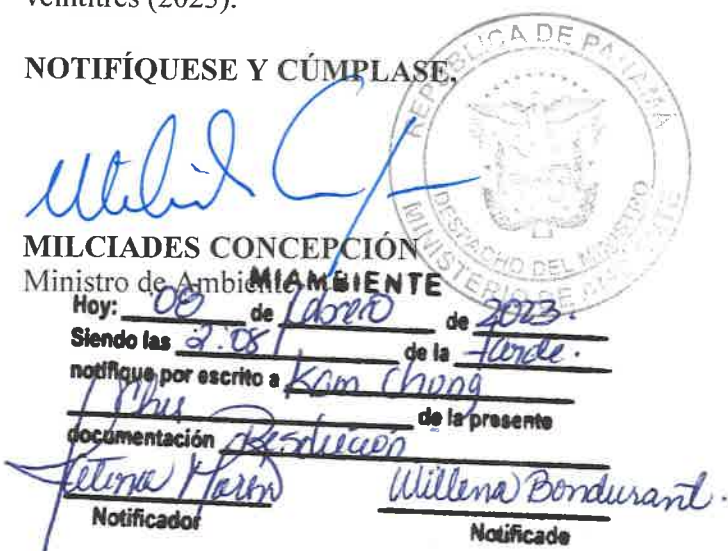 veintitrés (2023).
NOTIFÍQUESE Y CÚMPLASE,
REPÚBLICA DE PANAMÁ
DESPACHO DEL MINISTRO
MINISTERIO DE AMBIENTE
MILCIADES CONCEPCIÓN
Ministro de Ambiente
MIAMBIENTE
Hoy: 08 de febrero de 2023.
Siendo las 2:08 de la tarde.
notifique por escrito a Kam Chong
de la presente
documentación Resolución
Fatima Marin Willena Bondurant.
Notificador Notificado